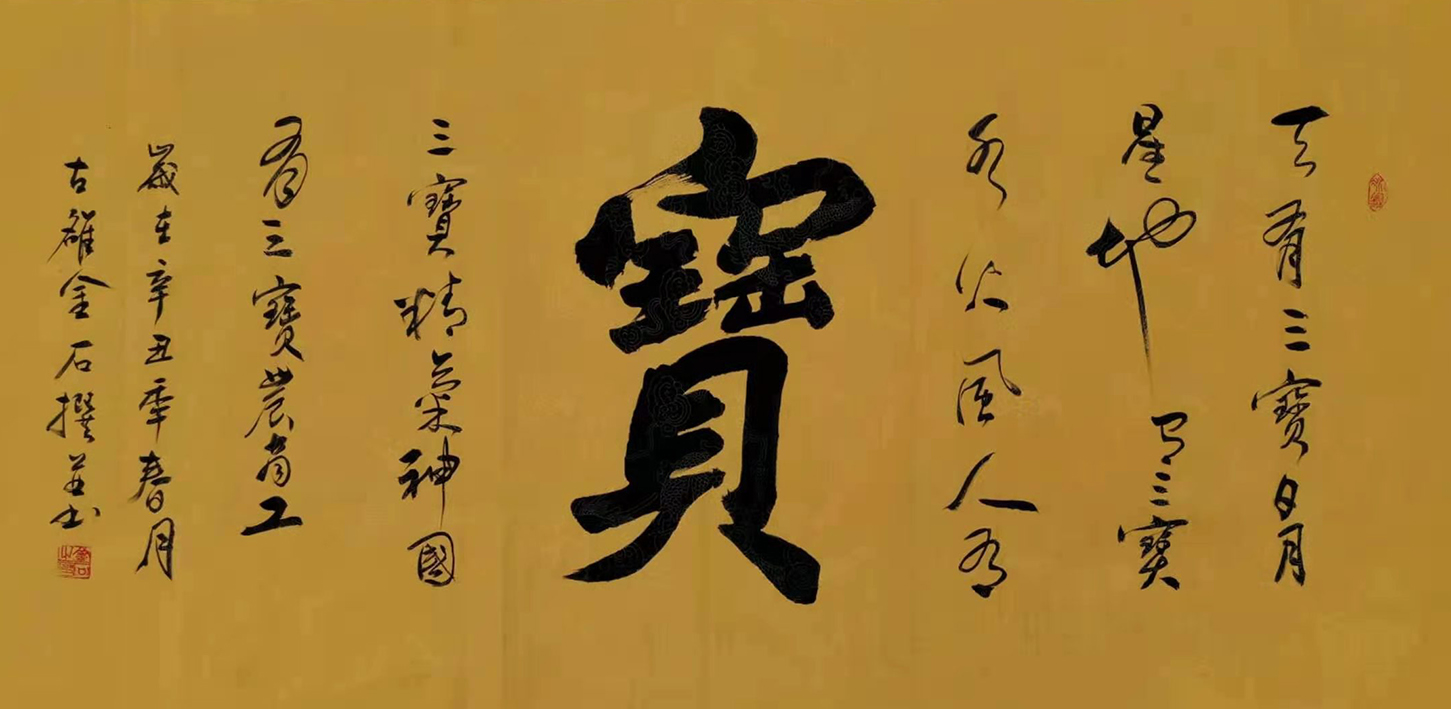 天有三寶日月
星地有三寶
水火風人有
寶
三寶精氣神國
有三寶農商工
歲在辛丑季春月
古雒金石撰並书